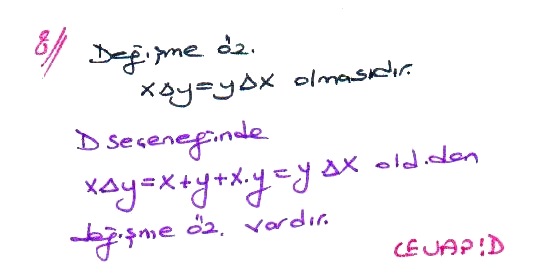 8// Değişme öz.
xΔy=yΔx olmasıdır.
D seçeneğinde
xΔy=x+y+x.y=yΔx old.dan
değişme öz. vardır.
CEVAP:D